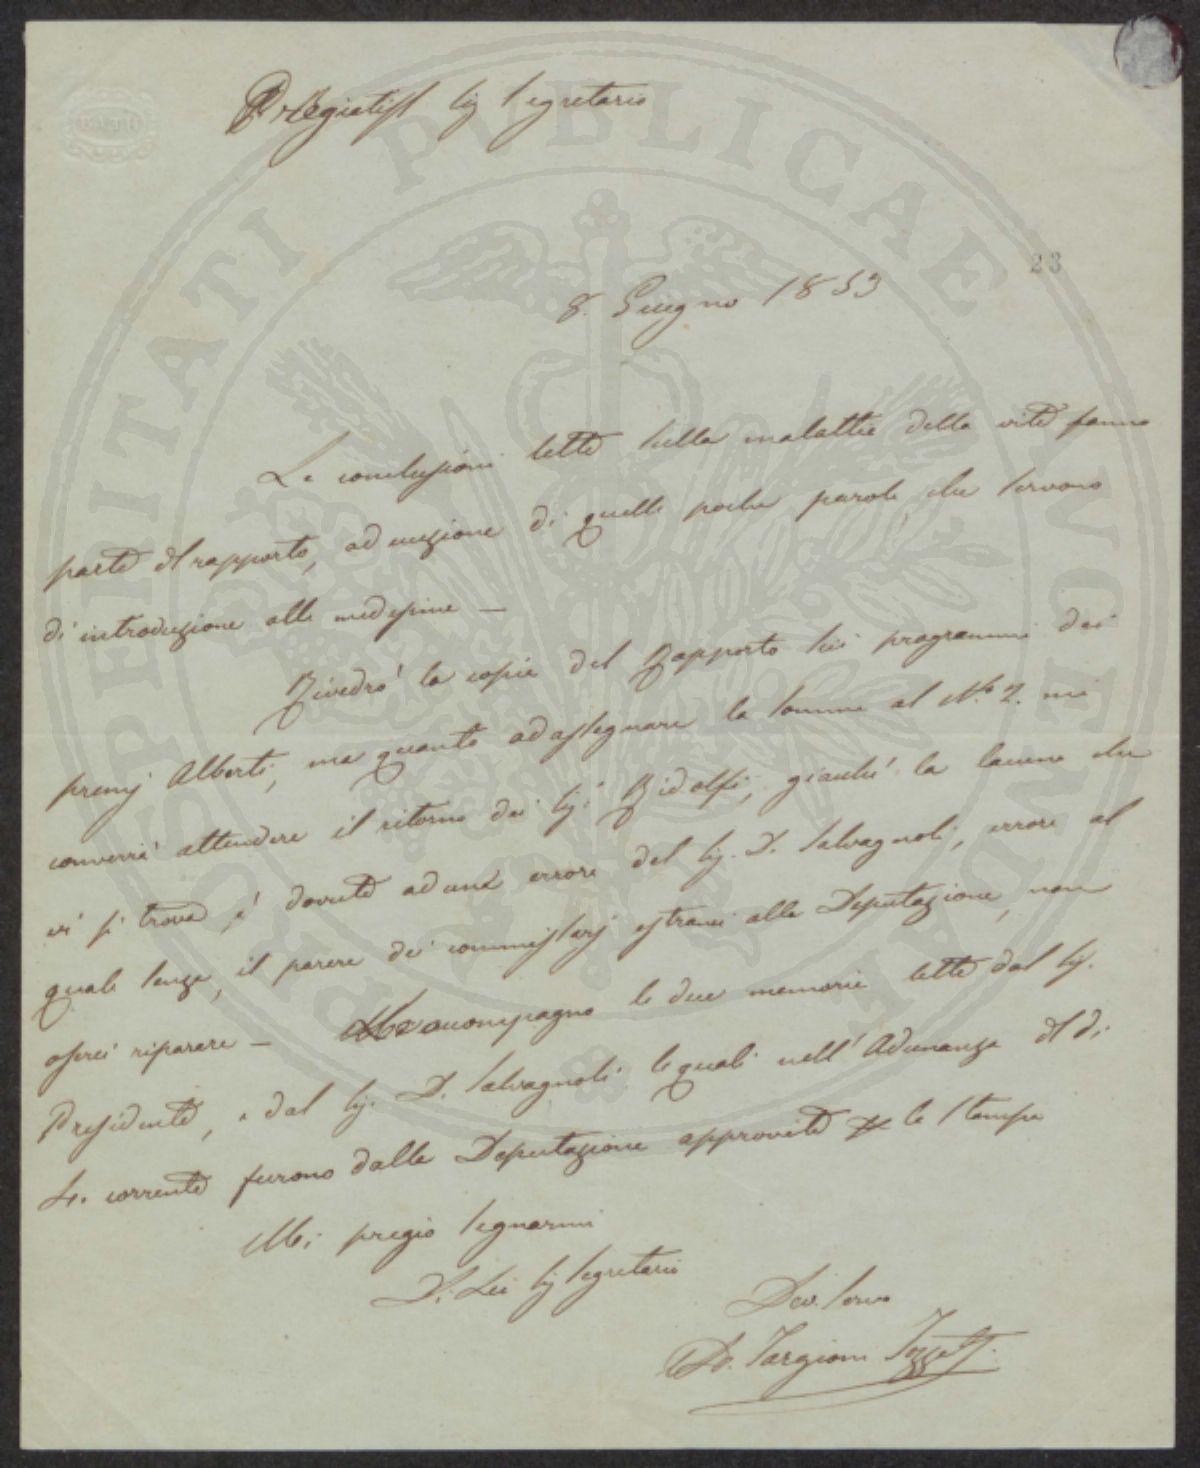 Pregiatiss Sig Segretario
23
8. Giugno 1853
Le conclusioni lette sulla malattia della vite fanno
parte del rapporto, ad eccezione di quelle poche parole che servono
di introduzione alle medesime —
Rivedrò la copia del Rapporto sui programmi dei
premj Alberti, ma quanto ad assegnare la somma al N.o 2. mi
converrà attendere il ritorno del Sig. Ridolfi, giacchè la lacuna che
vi si trova, è dovuta ad una errore del Sig. D. Salvagnoli, errore al
quale senza il parere dei commissarj estranei alla Deputazione, non
oserei riparare — accompagno le due memorie lette dal Sig.
Presidente, e dal Sig. D. Salvagnoli le quali nell'Adunanza del dì
4. corrente furono dalla Deputazione approvate per la stampa
Mi pregio segnarmi
Di Lei Sig Segretario
Dev. Servo
Ad. Targioni Tozzetti
PROSPERITATI PVBLICAE AVGENDAE
BATH